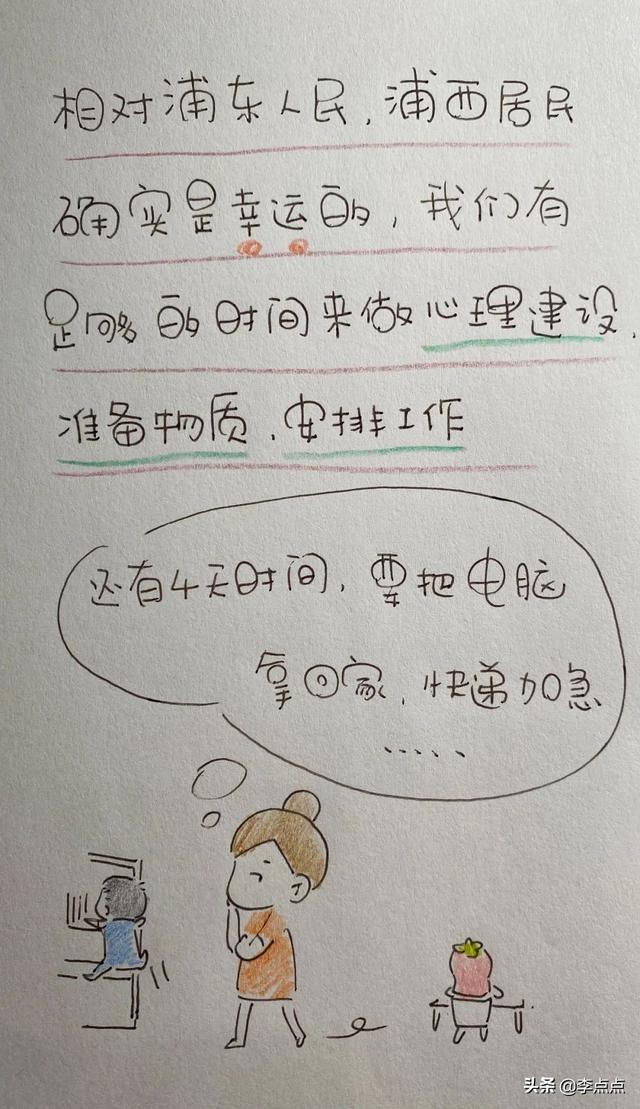 相对浦东人民，浦西居民
确实是幸运的，我们有
足够的时间来做心理建设，
准备物质，安排工作
还有4天时间，要把电脑
拿回家，快递加急
.....
头条 @李点点